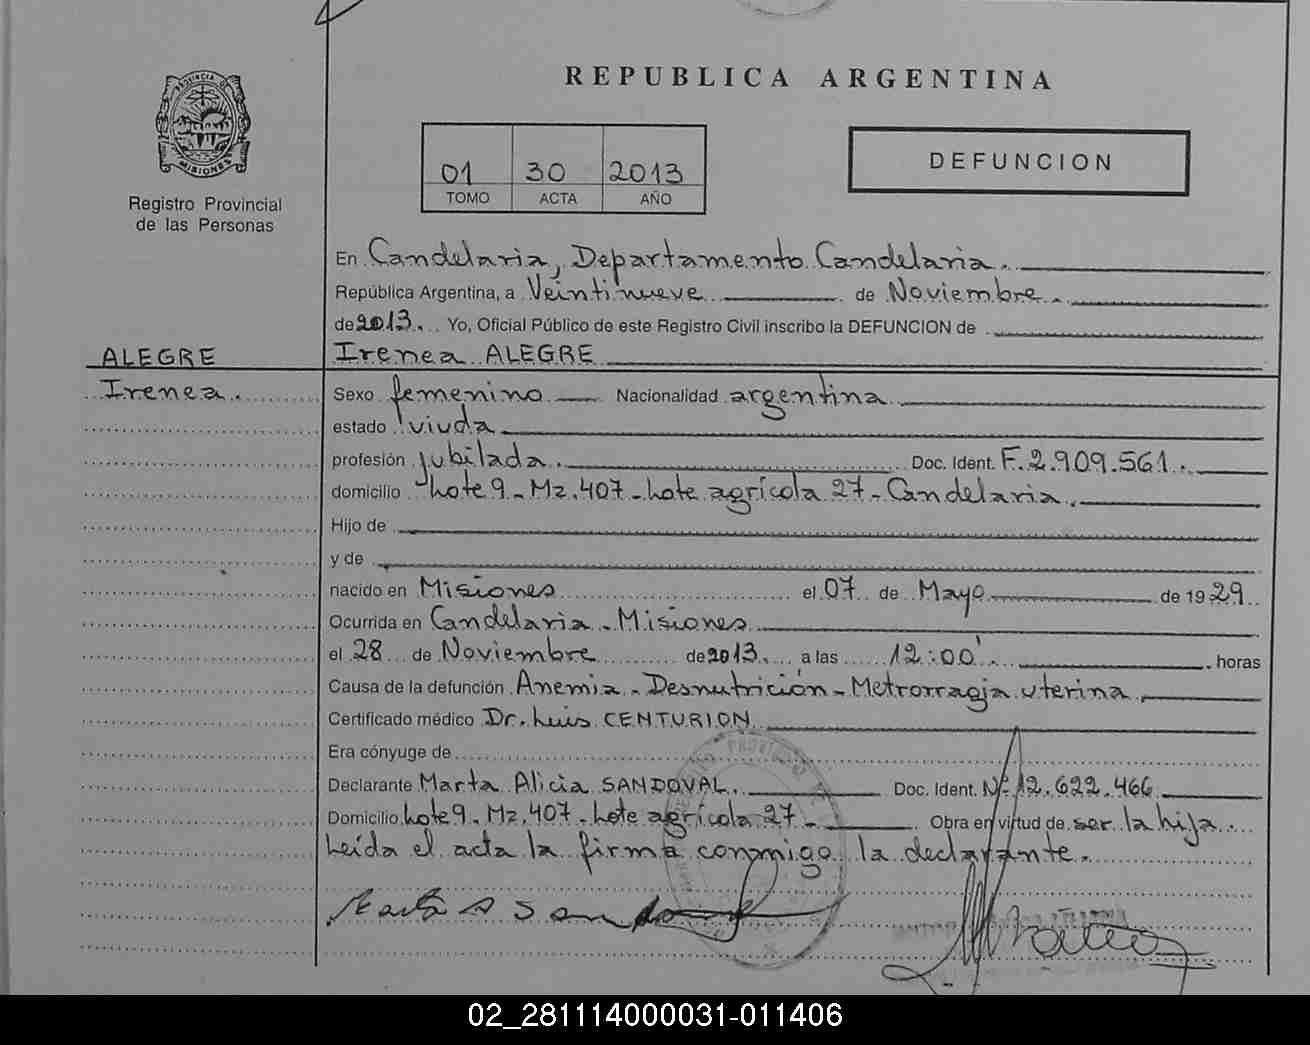 REPUBLICA ARGENTINA
PROVINCIA DE
MISIONES
Registro Provincial
de las Personas
01 30 2013
TOMO ACTA AÑO
DEFUNCION
En Candelaria, Departamento Candelaria.
República Argentina, a Veintinueve de Noviembre.
de 2013. Yo, Oficial Público de este Registro Civil inscribo la DEFUNCION de
ALEGRE
Irenea.
Irenea ALEGRE
Sexo femenino Nacionalidad argentina
estado viuda
profesión jubilada. Doc. Ident. F. 2.909.561.
domicilio Lote 9 - Mz. 407 - Lote agrícola 27 - Candelaria.
Hijo de
y de
nacido en Misiones el 07 de Mayo de 1929
Ocurrida en Candelaria - Misiones
el 28 de Noviembre de 2013. a las 12:00'. horas
Causa de la defunción Anemia - Desnutrición - Metrorragia uterina
Certificado médico Dr. Luis CENTURION
Era cónyuge de
Declarante Marta Alicia SANDOVAL. Doc. Ident. Nº 12.622.466
Domicilio Lote 9 - Mz. 407 - Lote agrícola 27 - Obra en virtud de ser la hija.
Leída el acta la firma conmigo la declarante.
Marta A Sandoval
02_281114000031-011406